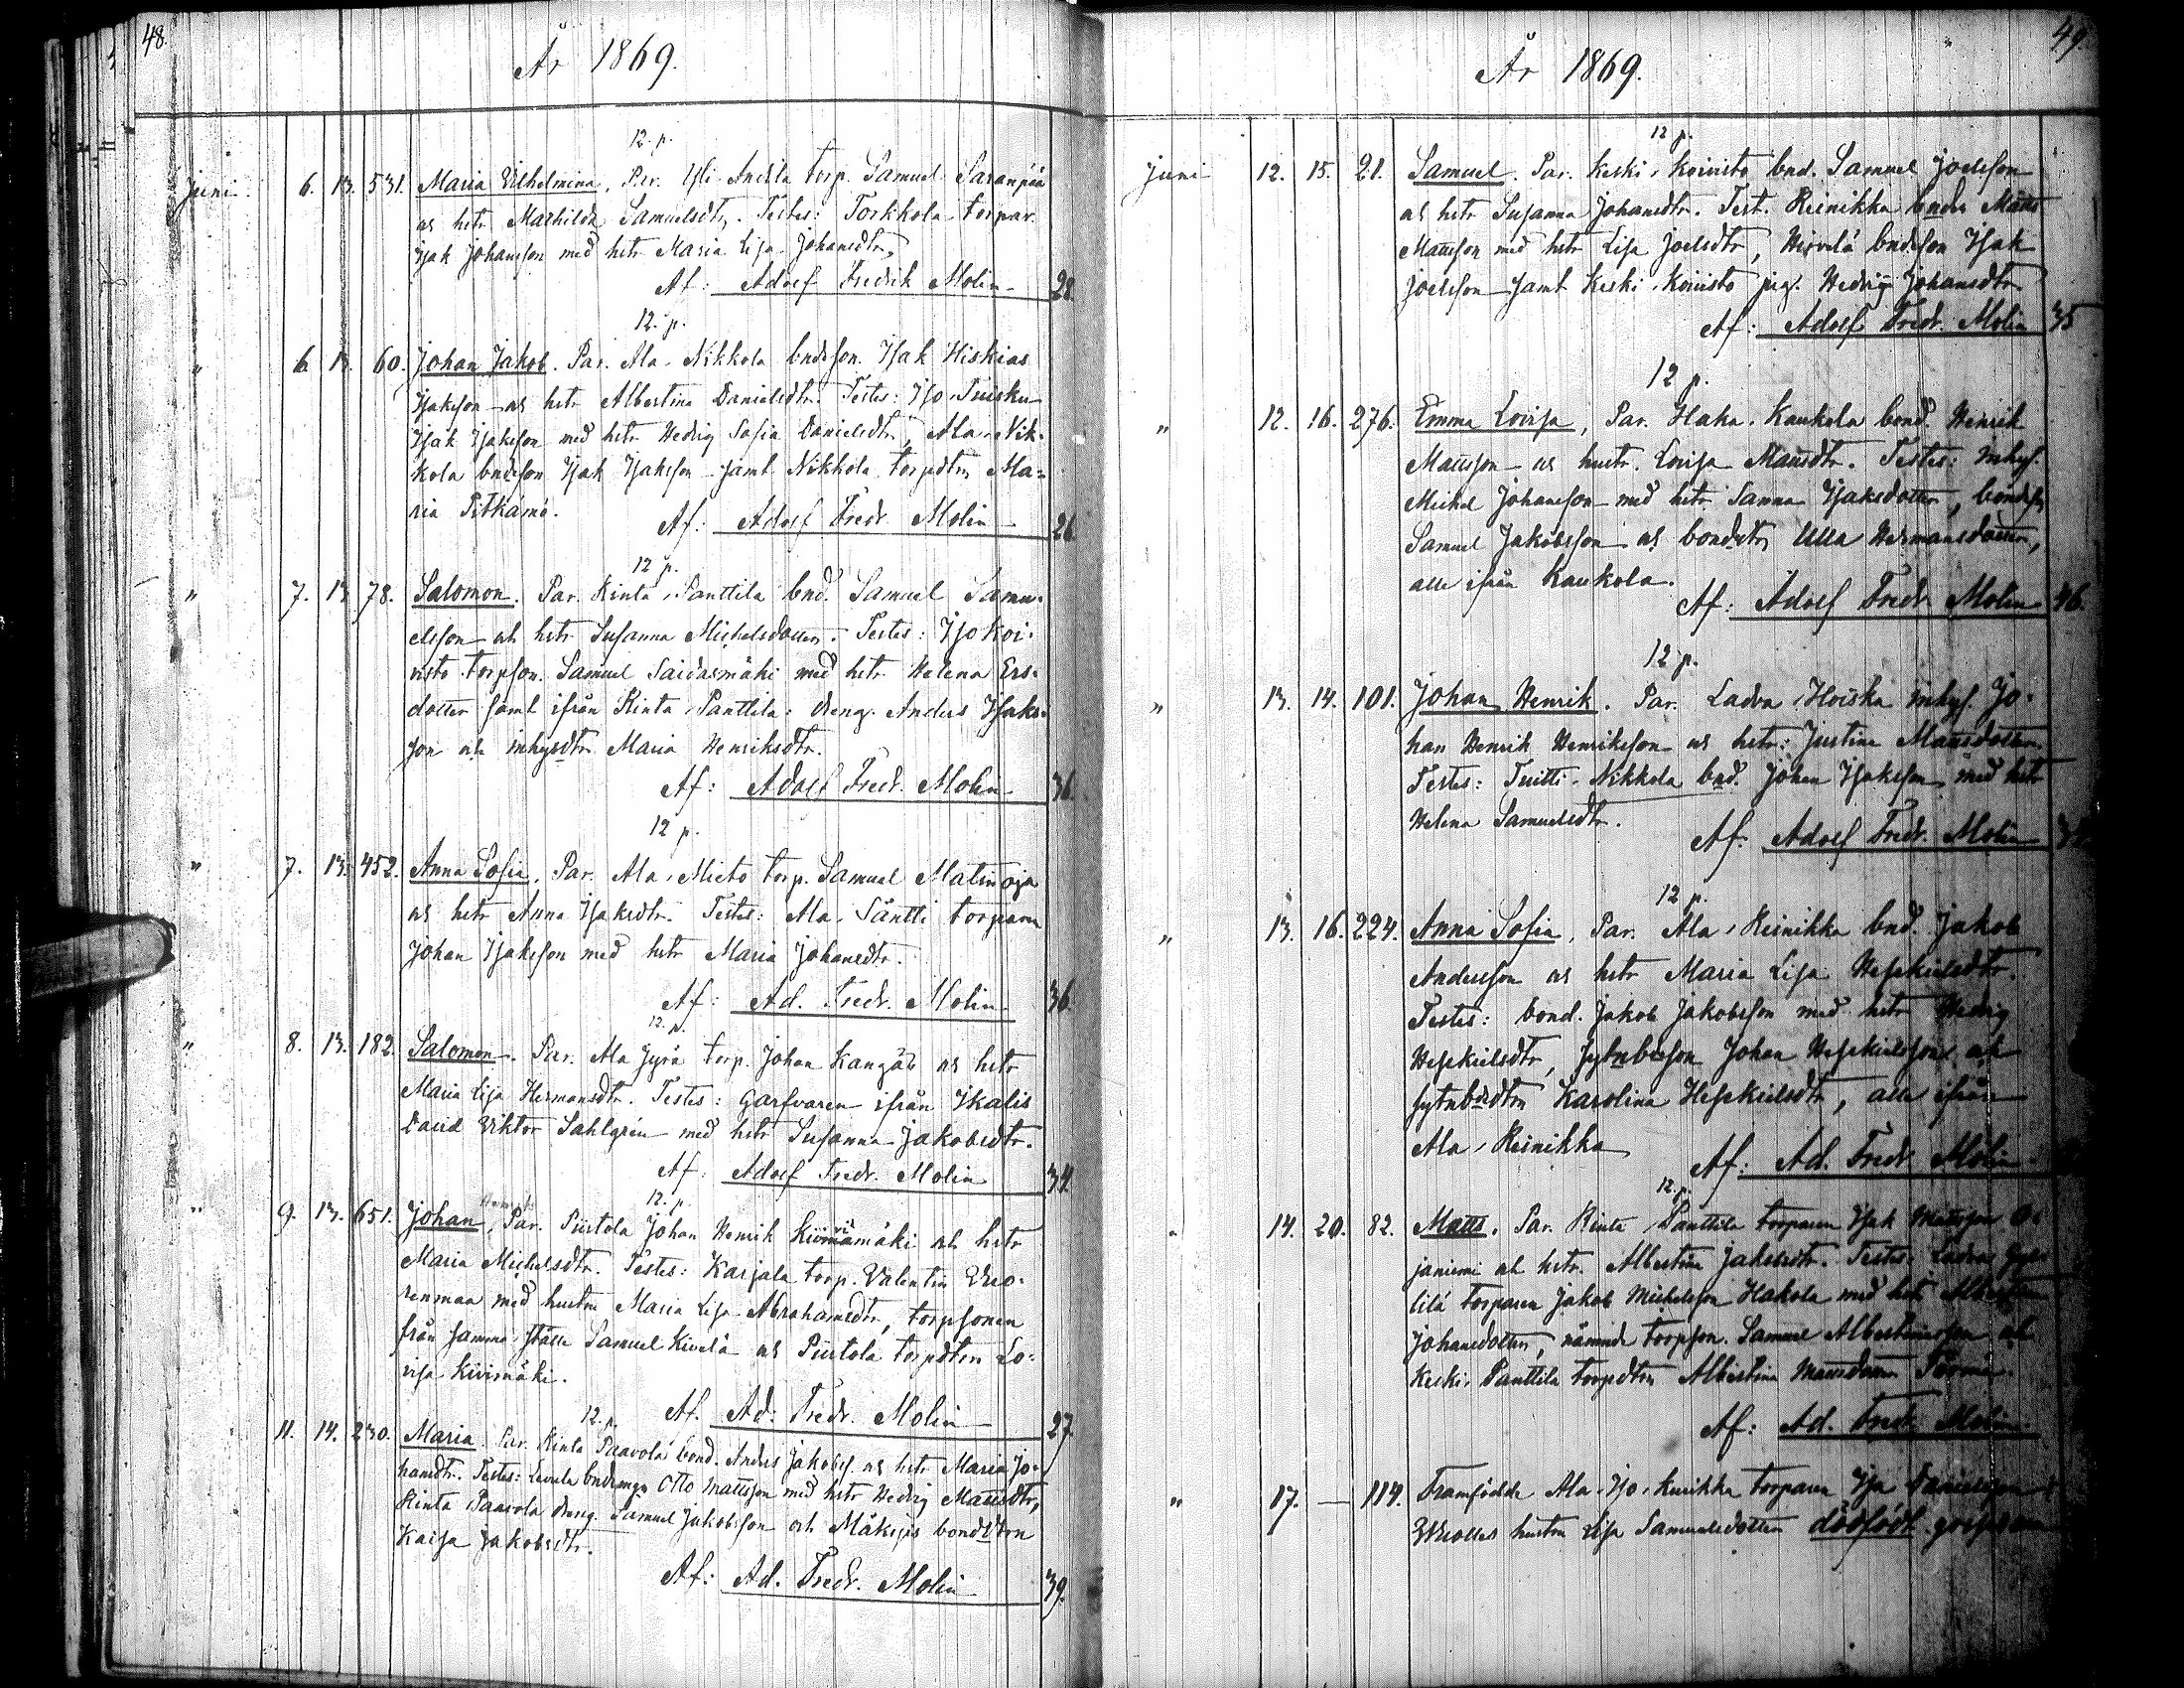 48.
År 1869.
12. p.
Juni 6. 13. 531. Maria Vilhelmina. Par. Yli Anttila torp. Samuel Saranpää
och hstr Mathilda Samuelsdtr. Testes: Torkkola torpar.
Isak Johansson med hstr Maria Lisa Johansdtr,
Af: Adolf Fredrik Molin 28.
12. p.
" 6. 13. 60. Johan Jakob. Par. Ala-Nikkola bndeson Isak Hiskias
Isaksson och hstr Albertina Danielsdtr. Testes: Iso-Tuisku
Isak Isaksson med hstr Hedvig Sofia Danielsdtr, Ala-Nik-
kola bndeson Isak Isaksson samt Nikkola torpdtrn Ma=
ria Pitkämö.
Af: Adolf Fredr. Molin 26.
12 p.
" 7. 13 78. Salomon. Par. Rinta-Panttila bnd. Samuel Samu-
elsson och hstr Susanna Michelsdotter. Testes: Iso Koi-
visto torpson. Samuel Saidasmäki med hstr Helena Ers-
dotter samt ifrån Rinta-Panttila: dreng. Anders Isaks-
son och inhysdtr Maria Henriksdtr.
Af: Adolf Fredr. Molin 36.
12 p.
" 7. 13. 452. Anna Sofia. Par. Ala-Mieto torp. Samuel Matinoja
och hstr Anna Isaksdtr. Testes: Ala-Säntti torparen
Johan Isaksson med hstr Maria Johansdtr.
Af: Ad. Fredr. Molin 36.
12. p.
" 8. 13. 182. Salomon. Par. Ala Jyrä torp. Johan Kangas och hstr
Maria Lisa Hermansdtr. Testes: Garfvaren ifrån Ikalis
David Viktor Sahlgrén med hstr Susanna Jakobsdtr.
Af: Adolf Fredr. Molin 34.
12. p.
" 9. 13. 651. Johan, Par. Piirtola Johan Henrik Kivimäki och hstr
Maria Michelsdtr. Testes: Karjala torp. Valentin Vuo-
renmaa med hustru Maria Lisa Abrahamsdtr, torpsonen
från samma ställe Samuel Kivelä och Piirtola torpdtrn Lo-
visa Kivimäki.
Af. Ad: Fredr. Molin 27.
12. p.
11. 14. 230. Maria. Par. Rinta Paavola bond. Anders Jakobss. och hstr Maria Jo-
hansdtr. Testes: Levula bndmåg. Otto Mattsson med hstr Hedvig Mattsdtr,
Rinta Paavola dreng. Samuel Jakobsson och Mäkinis bonddtrn
Kaisa Jakobsdtr.
Af: Ad. Fredr. Molin 39.
49.
År 1869.
12 p.
Juni 12. 15. 21. Samuel. Par. Keski-Koivisto bnd. Samuel Joelsson
och hstr Susanna Johansdtr. Test. Reinikka bnden Matts
Mattsson med hstr Lisa Joelsdtr, Hirvelä bndeson Isak
Joelsson samt Keski-Koivisto pig. Hedvig Johansdtr
Af: Adolf Fredr. Molin 35
12 p.
" 12. 16. 276. Emma Lovisa, Par. Haka-Kaukola bond. Henrik
Mattsson och hustr. Lovisa Mattsdtr. Testes: Inhys.
Michel Johansson med hstr Sanna Isaksdotter, bondeson
Samuel Jakobsson och bonddtrn Ulla Hermansdotter,
alle ifrån Kaukola.
Af: Adolf Fredr Molin 46.
12 p.
" 13. 14. 101. Johan Henrik. Par. Ladva Hoiska inhys. Jo-
han Henrik Henriksson och hstr: Justina Mattsdotter
Testes: Tuitti-Nikkola bnd. Johan Isaksson med hstr
Helena Samuelsdtr.
Af: Adolf Fredr. Molin
12 p.
" 13. 16. 224. Anna Sofia, Par. Ala-Reinikka bnd. Jakob
Andersson och hstr Maria Lisa Hesekielsdtr.
Testes: bond. Jakob Jakobsson med hstr Hedvig
Hesekielsdtr, sytnbdeson Johan Hesekielsson och
sytnbdrdtrn Karolina Hesekielsdtr, alle ifrån
Ala-Reinikka
Af: Ad. Fredr Molin
12. p.
" 14. 20. 82. Matts. Par. Rinta-Panttila torparen Isak Mattsson O-
janiemi och hstr. Albertina Jakobsdtr. Testes: Ladva
lilä torparen Jakob Michelsson Hakola med hstr Albertina
Johansdotter, nämnde torpson. Samuel Albertinusson och
Keski-Panttila torpdtrn Albertina Mattsdotter Törmä.
Af: Ad. Fredr Molin
" 17. — 114. Framfödde Ala-Iso-Kurikka torparen Isa Danielsson
hustru Lisa Samuelsdotter dödfödt gossebarn